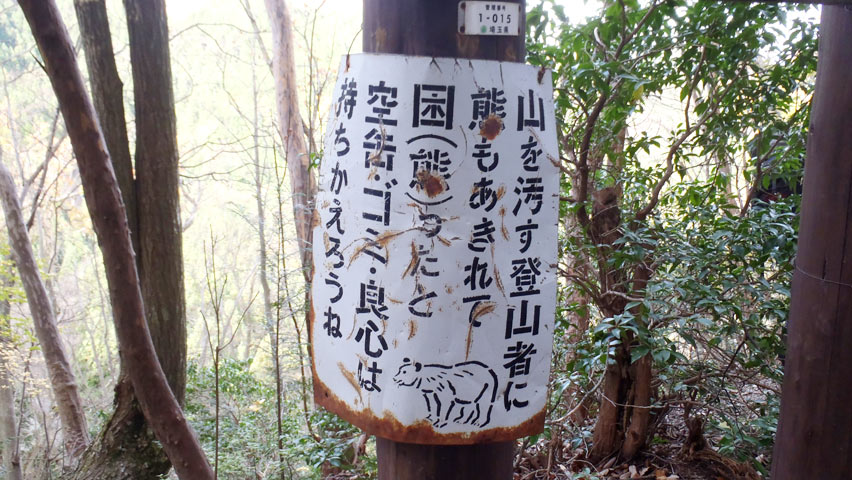 管理番号
1-015
埼玉県
山を汚す登山者に
熊もあきれて
困(熊)ったと
空缶・ゴミ・良心は
持ちかえろうね